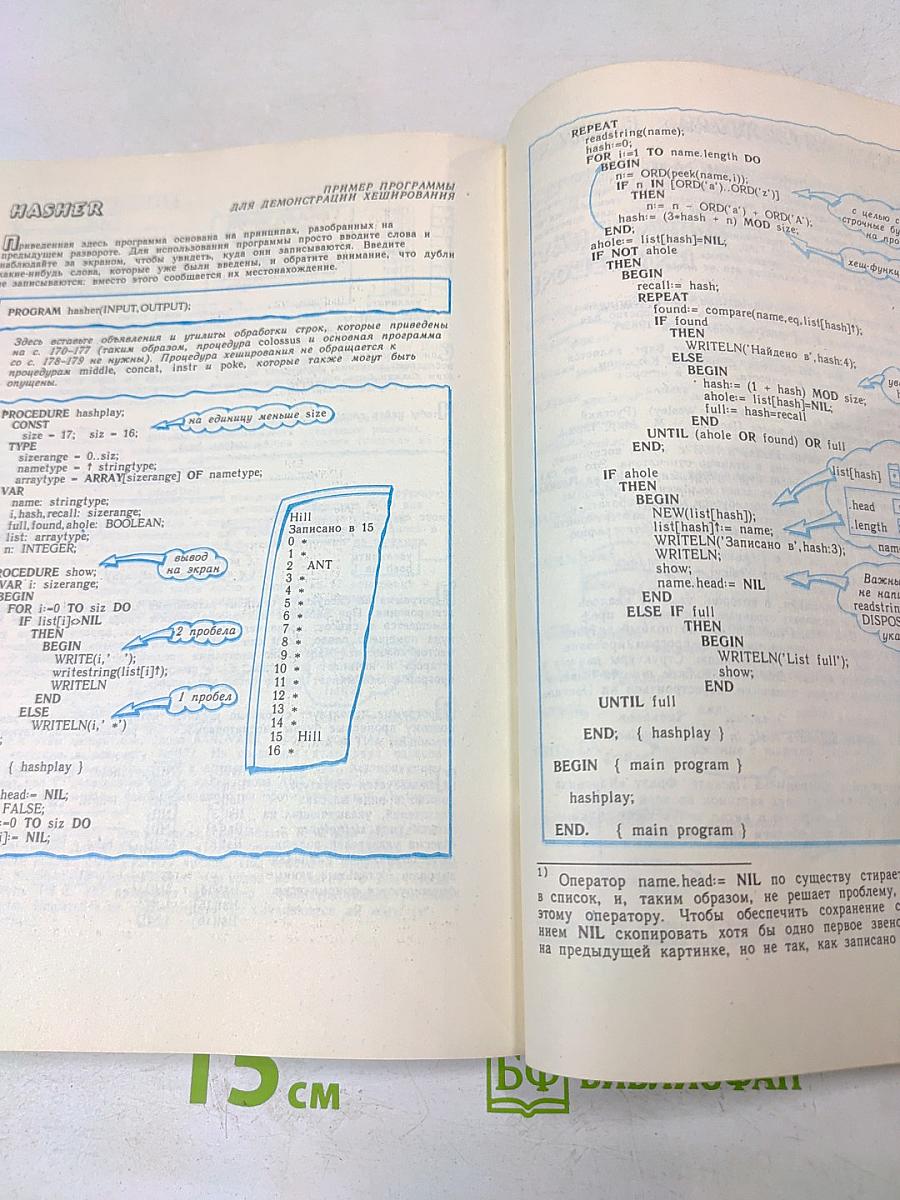 HASHER
ПРИМЕР ПРОГРАММЫ
ДЛЯ ДЕМОНСТРАЦИИ ХЕШИРОВАНИЯ
Приведенная здесь программа основана на принципах, разобранных на
предыдущем развороте. Для использования программы просто вводите слова и
наблюдайте за экраном, чтобы увидеть, куда они записываются. Введите
какие-нибудь слова, которые уже были введены, и обратите внимание, что дубли
не записываются: вместо этого сообщается их местонахождение.
PROGRAM hasher(INPUT,OUTPUT);
Здесь вставьте объявления и утилиты обработки строк, которые приведены
на с. 170–177 (таким образом, процедура colossus и основная программа
со с. 178–179 не нужны). Процедура хеширования не обращается к
процедурам middle, concat, instr и poke, которые также могут быть
опущены.
PROCEDURE hashplay;
CONST
size = 17; siz = 16;
на единицу меньше size
TYPE
sizerange = 0..siz;
nametype = ↑ stringtype;
arraytype = ARRAY[sizerange] OF nametype;
VAR
name: stringtype;
i,hash,recall: sizerange;
full,found,ahole: BOOLEAN;
list: arraytype;
n: INTEGER;
ROCEDURE show;
вывод
на экран
VAR i: sizerange;
BEGIN
FOR i:=0 TO siz DO
IF list[i]<>NIL
THEN
BEGIN
2 пробела
WRITE(i,'  ');
writestring(list[i]↑);
WRITELN
END
1 пробел
ELSE
WRITELN(i,' *')
;
{ hashplay }
head:= NIL;
FALSE;
:=0 TO siz DO
i]:= NIL;
Hill
Записано в 15
0 *
1 *
2 ANT
3 *
4 *
5 *
6 *
7 *
8 *
9 *
10 *
11 *
12 *
13 *
14 *
15 Hill
16 *
REPEAT
readstring(name);
hash:=0;
FOR i:=1 TO name.length DO
BEGIN
n:= ORD(peek(name,i));
IF n IN [ORD('a')..ORD('z')]
THEN
n:= n - ORD('a') + ORD('A');
hash:= (3*hash + n) MOD size;
END;
с целью с
строчные бу
на про
хеш-функц
ahole:= list[hash]=NIL;
IF NOT ahole
THEN
BEGIN
recall:= hash;
REPEAT
found:= compare(name,eq,list[hash]↑);
IF found
THEN
WRITELN('Найдено в',hash:4);
ELSE
BEGIN
hash:= (1 + hash) MOD size;
ahole:= list[hash]=NIL;
full:= hash=recall
END
UNTIL (ahole OR found) OR full
END;
ув
IF ahole
THEN
BEGIN
NEW(list[hash]);
list[hash]↑:= name;
WRITELN('Записано в',hash:3);
WRITELN;
show;
name.head:= NIL
END
list[hash]
.head
.length
name
Важны
не напи
readstrin
DISPOS
ука
ELSE IF full
THEN
BEGIN
WRITELN('List full');
show;
END
UNTIL full
END; { hashplay }
BEGIN { main program }
hashplay;
END. { main program }
1) Оператор name.head:= NIL по существу стирает
в список, и, таким образом, не решает проблему,
этому оператору. Чтобы обеспечить сохранение с
нием NIL скопировать хотя бы одно первое звено
на предыдущей картинке, но не так, как записано
15 см
БФ БИБЛИОФАН